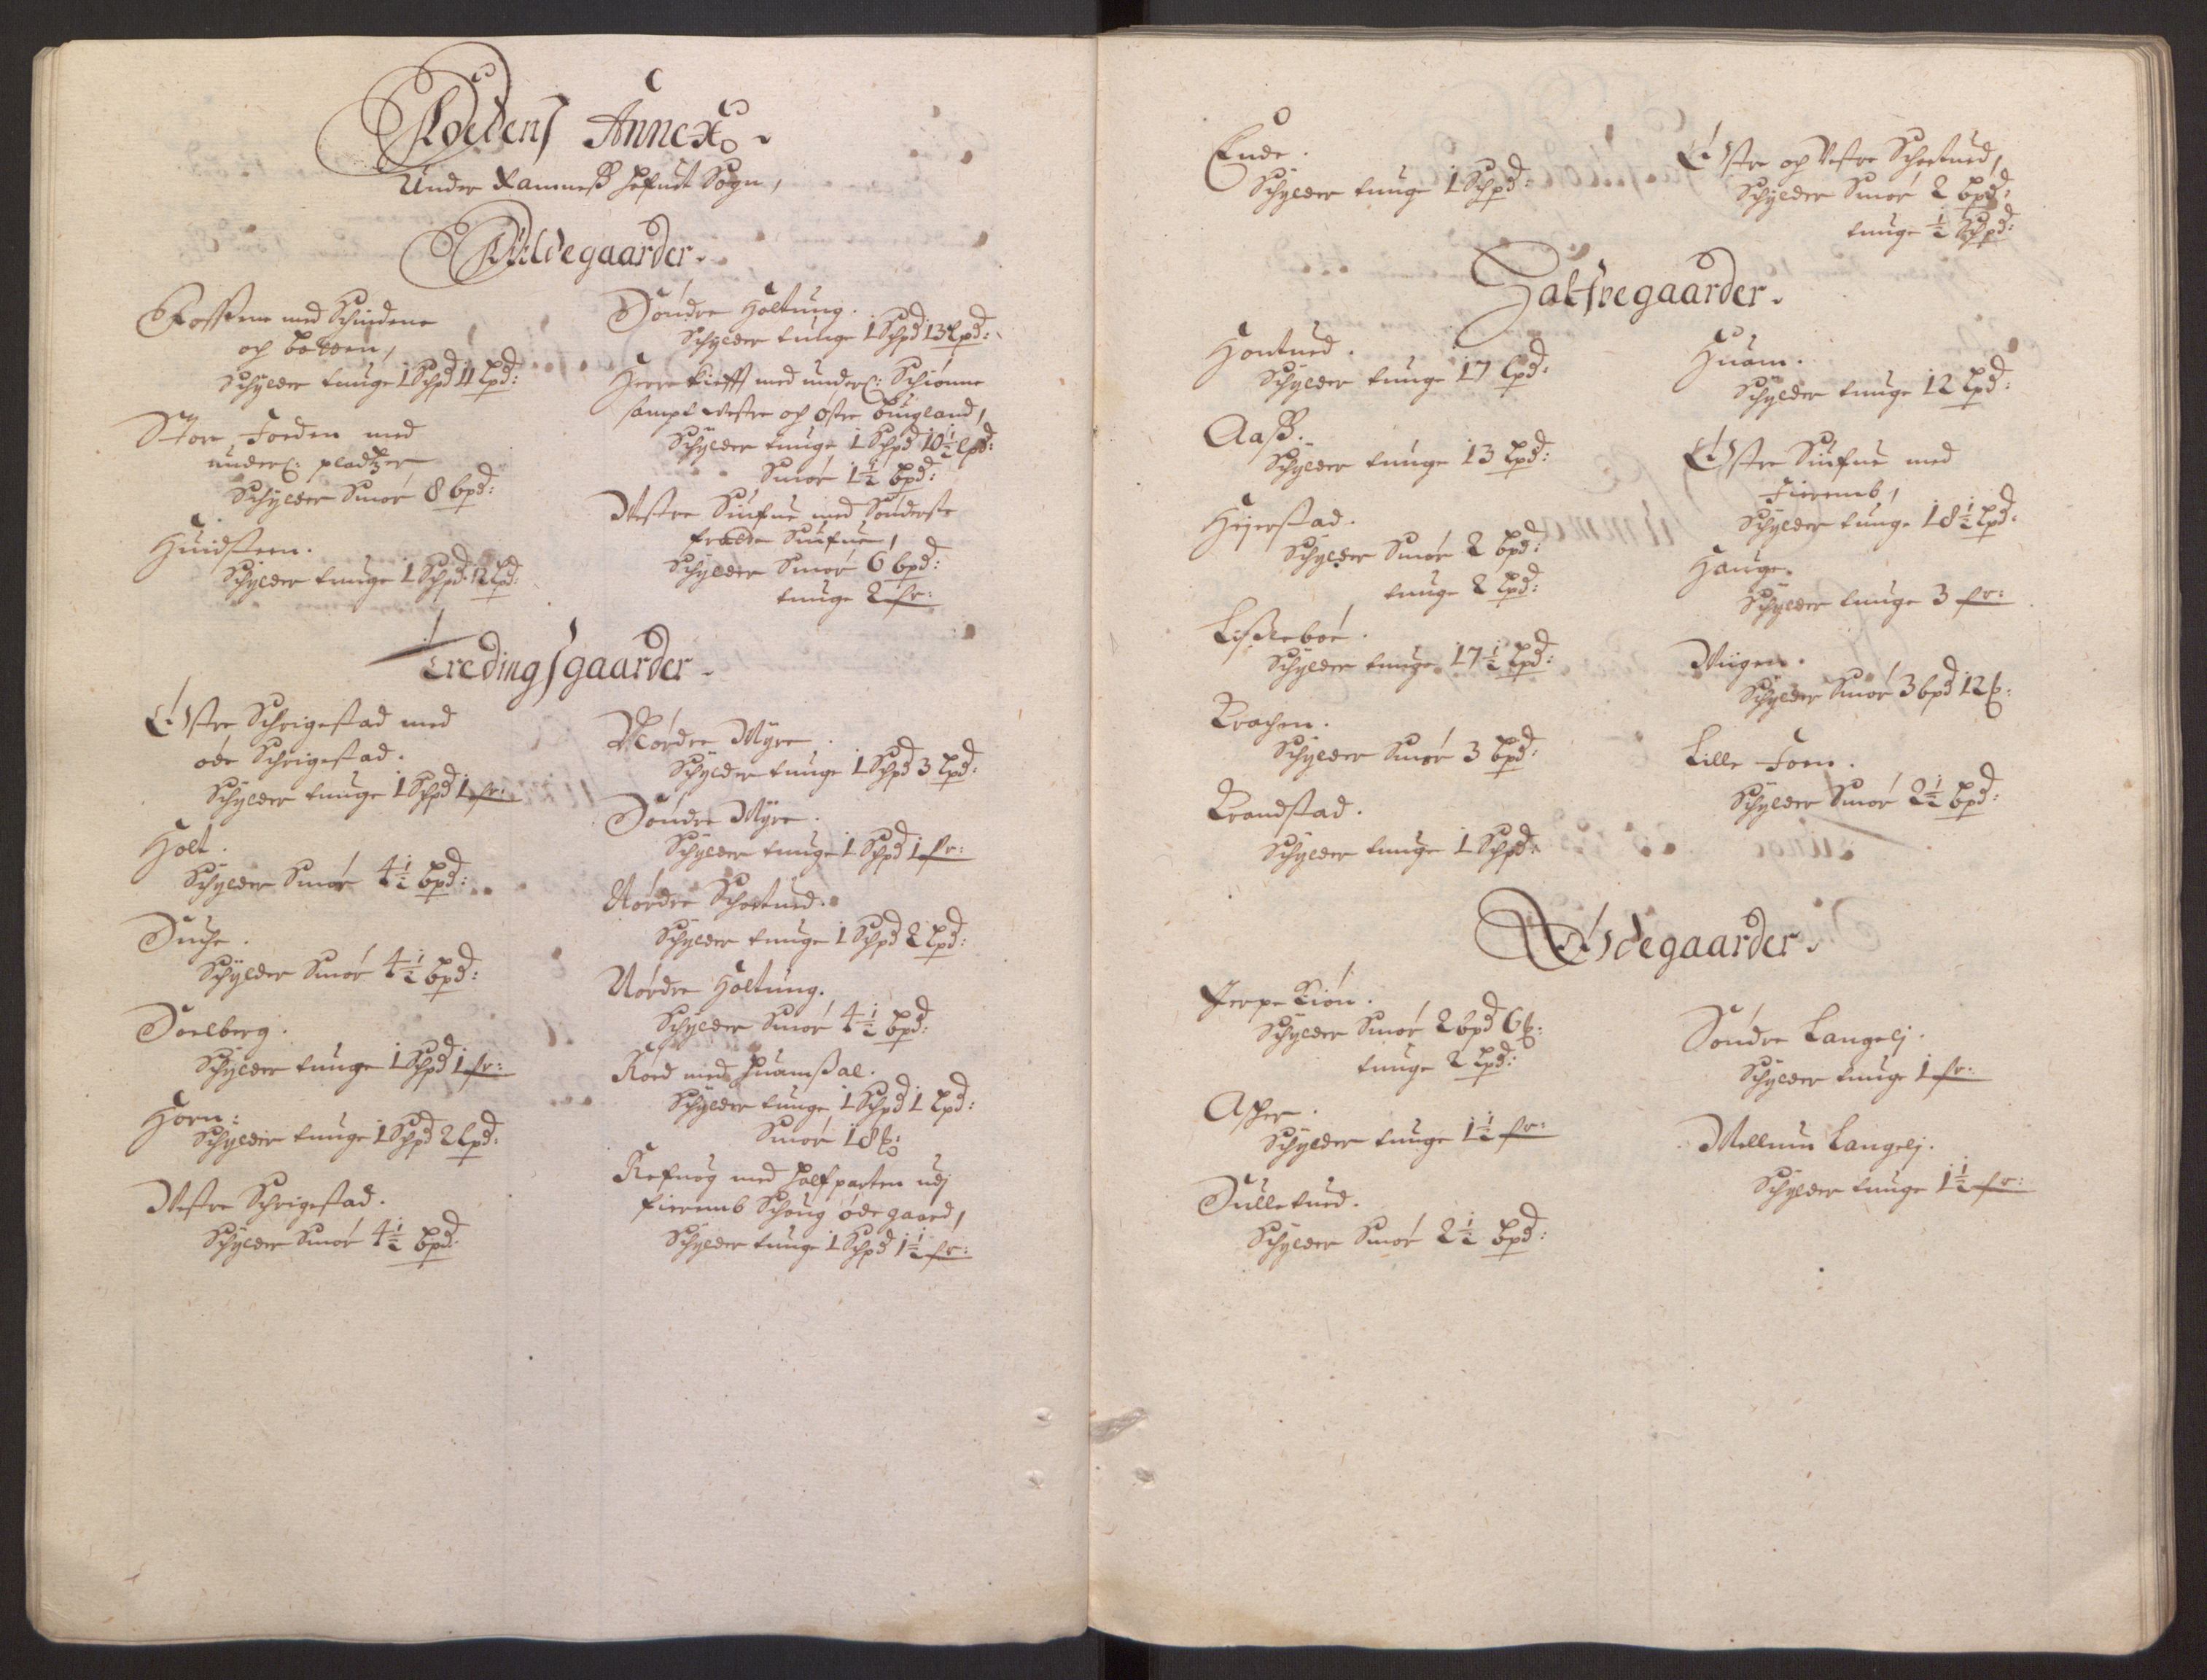 Foedens Annex
Under Ramness hofuet Sogn,
Fuldegaarder.
med Schieden
och Botten,
Schylder tunge 1 Schpd 4 Lpd:
Store Foeden med
underl: pladtzer
Schylder Smör 8 bpd:
Huidsteen.
Schylder tunge 1 Schpd 12 Lpd:
Söndre Holtung.
Schylder tunge 1 Schpd 13 Lpd:
med underl: Schiönne
sampt vestre och östre Bugland,
Schylder tunge 1 Schpd 10½ Lpd:
Smör 1½ bpd:
Vestre Sinfne med Sönderste
Sinfne,
Schylder Smör 6 bpd:
tunge 2 fr:
Tredingsgaarder
Östre Schrigestad med
öde Schrigestad.
Schylder tunge 1 Schpd 1 fr:
Holt.
Schylder Smör 4½ bpd:
Duche.
Schylder Smör 4½ bpd:
Soelberg.
Schylder tunge 1 Schpd 1 fr:
Horn:
Schylder tunge 1 Schpd 2 Lpd:
Vestre Schrigestad.
Schylder Smör 4½ bpd:
Nördre Myre.
Schylder tunge 1 Schpd 3 Lpd:
Söndre Myre.
Schylder tunge 1 Schpd 1 fr:
Nördre Schortued.
Schylder tunge 1 Schpd 2 Lpd:
Nördre Holtung.
Schylder Smör 4½ bpd:
Roed med Huamssal.
Schylder tunge 1 Schpd 1 Lpd:
Smör 18
Refnög med halfparten udj
fierumb Schoug öde gaard,
Schylder tunge 1 Schpd 1½ fr:
Ende.
Schylder tunge 1 Schpd:
Östre och Vestre Schortued,
Schylder Smör 2 bpd:
tunge ½ Schpd:
Halfvegaarder.
Hontued.
Schylder tunge 17 Lpd:
Aass.
Schylder tunge 13 Lpd:
Heierstad.
Schylder Smör 2 bpd:
tunge 2 Lpd:
Lissleboe.
Schylder tunge 17½ Lpd:
Krachen.
Schylder Smör 3 bpd:
Krandstad.
Schylder tunge 1 Schpd:
Huam.
Schylder tunge 12 Lpd:
Östre Sinfne med
Fieremb,
Schylder tunge 18½ Lpd:
Hauge.
Schylder tunge 3 fr:
Viigen.
Schylder Smör 3 bpd 12
Lille Foen.
Schylder Smör 2½ bpd:
Ödegaarder.
Jerpe Kiön.
Schylder Smör 2 bpd 6
tunge 2 Lpd:
Asker.
Schylder tunge 1½ fr:
Dulletued.
Schylder Smör 2½ bpd:
Söndre Langelj.
Schylder tunge 1 fr:
Mellum Langelj.
Schylder tunge 1½ fr: